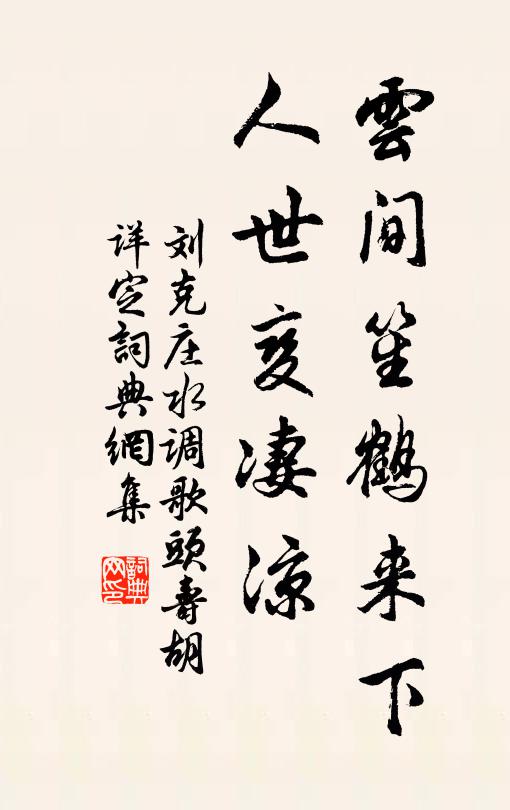 雲间笙鶴来下
人世变凄凉
刘克庄水调歌頭壽胡
详定詞典網集
詞典网印